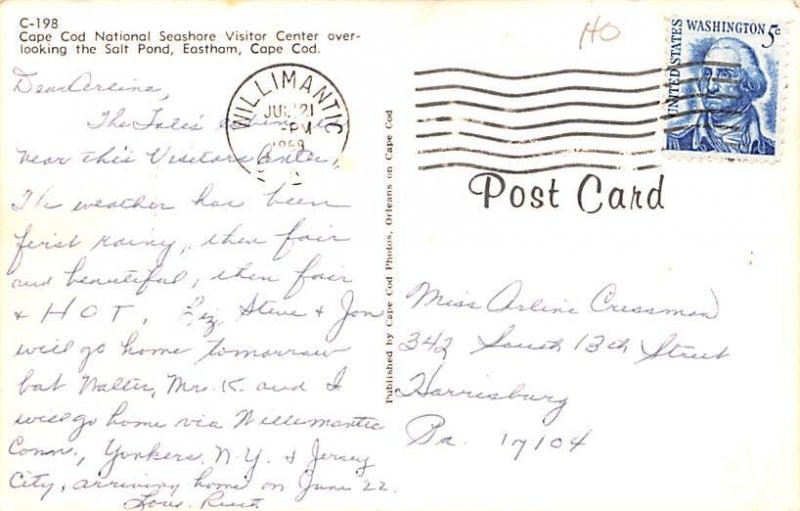 C-198
Cape Cod National Seashore Visitor Center over-
looking the Salt Pond, Eastham, Cape Cod.
Dear Arline,
The Tale's cabin is
near this Visitors Center,
The weather has been
first rainy, then fair
and beautiful; then fair
& HOT. Liz, Steve & Jon
will go home tomorrow
but Walter, Mrs. K. and I
will go home via Willimantic
Conn., Yonkers, N.Y. & Jersey
City, arriving home on June 22.
Love, Ruth
WILLIMANTIC
JUN 21
PM
1968
Published by Cape Cod Photos, Orleans on Cape Cod
HO
UNITED STATES
WASHINGTON 5c
Post Card
Miss Arline Cressman
342 South 13th Street
Harrisburg
Pa. 17104